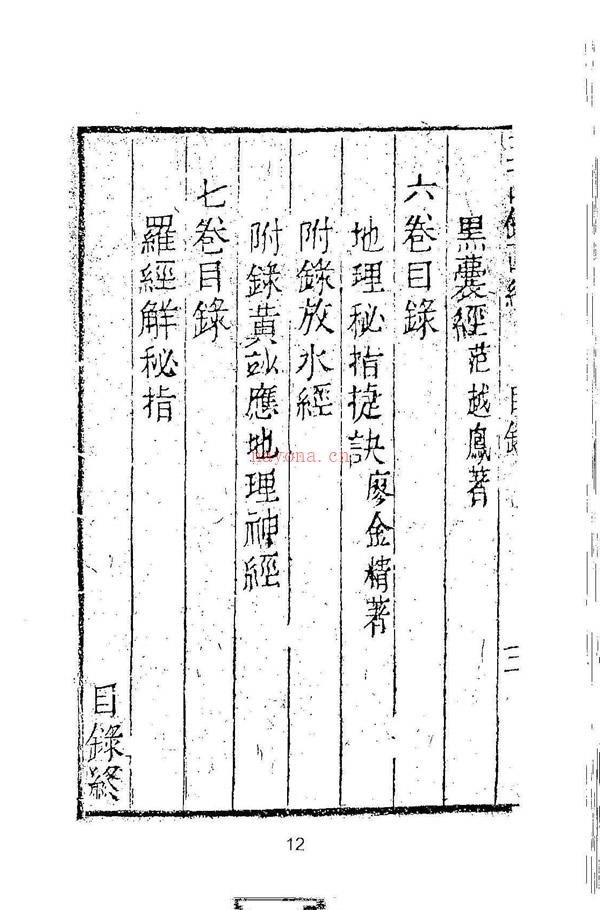 黑囊經范越鳳著
六卷目錄
地理秘指捷訣廖金精著
附錄放水經
附錄黃玅應地理神經
七卷目錄
羅經解秘指
目錄終
12
nayona.cn